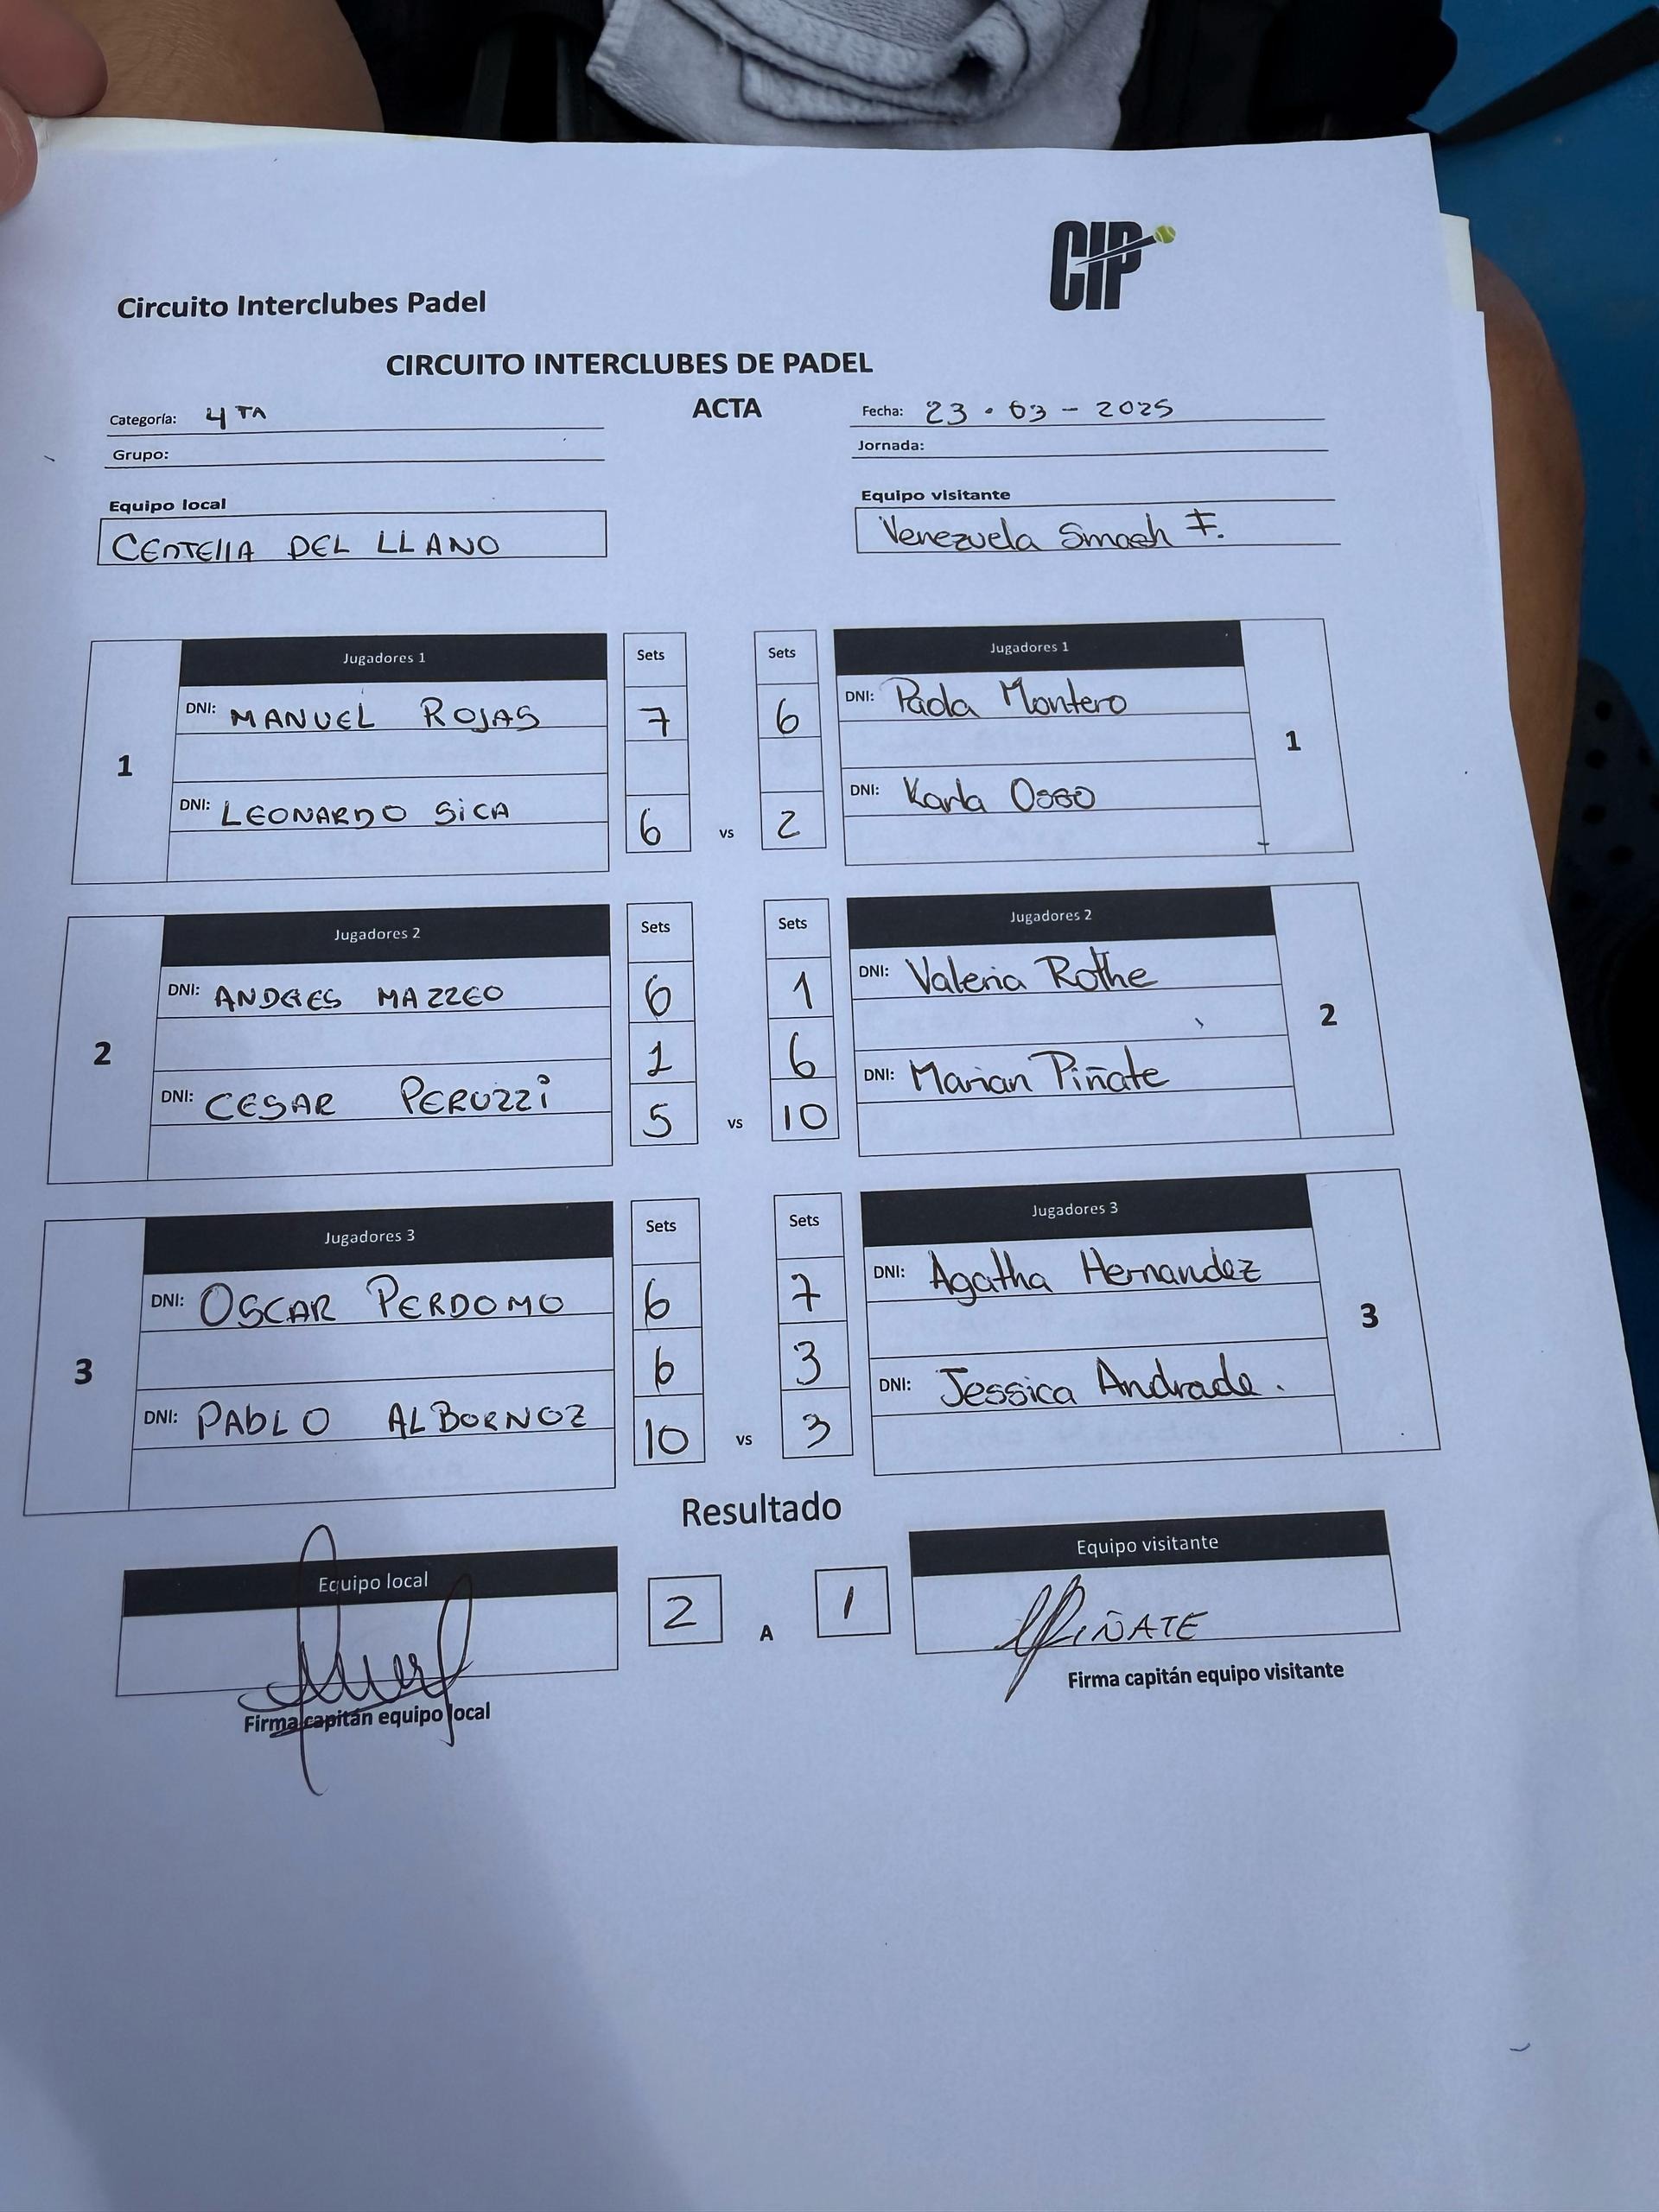 CIP
Circuito Interclubes Padel
CIRCUITO INTERCLUBES DE PADEL
ACTA
Categoría: 4TA
Fecha: 23 · 03 - 2025
Grupo:
Jornada:
Equipo local
Equipo visitante
CENTELLA DEL LLANO
Venezuela Smash F.
Jugadores 1 Sets Sets Jugadores 1
DNI: MANUEL ROJAS 7 6 DNI: Paola Montero
1 1
DNI: LEONARDO SICA 6 vs 2 DNI: Karla Osso
Jugadores 2 Sets Sets Jugadores 2
DNI: ANDRES MAZZEO 6 1 DNI: Valeria Rothe
2 1 6 2
DNI: CESAR PERUZZI 5 vs 10 DNI: Marian Piñate
Jugadores 3 Sets Sets Jugadores 3
DNI: OSCAR PERDOMO 6 7 DNI: Agatha Hernandez
3 6 3 3
DNI: PABLO ALBORNOZ 10 vs 3 DNI: Jessica Andrade.
Resultado
Equipo local Equipo visitante
2 A 1 PIÑATE
Firma capitán equipo local
Firma capitán equipo visitante